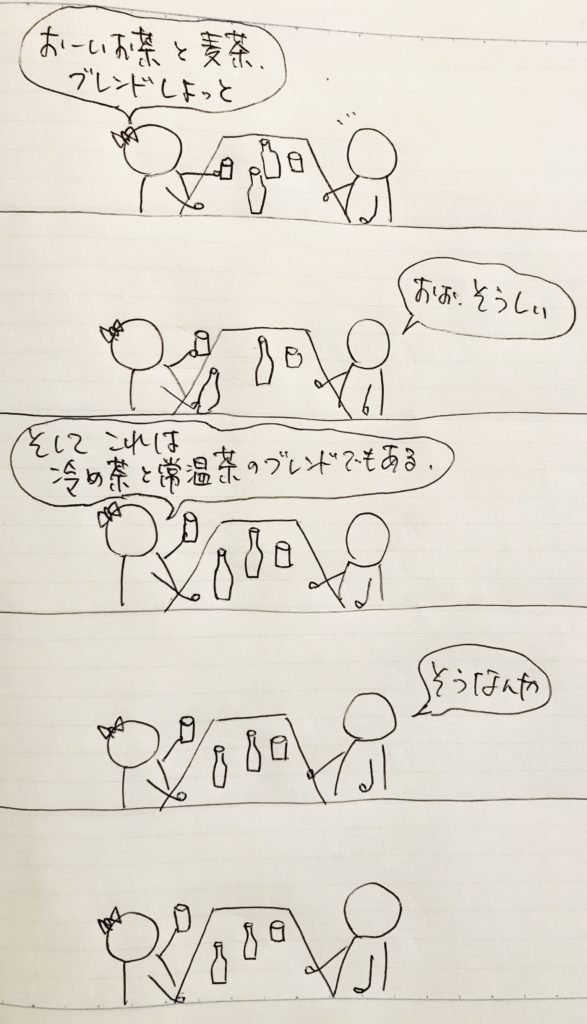 おーいお茶と麦茶、
ブレンドしよっと
おお、そうしい
そして これは
冷め茶と常温茶のブレンドでもある、
そうなんや